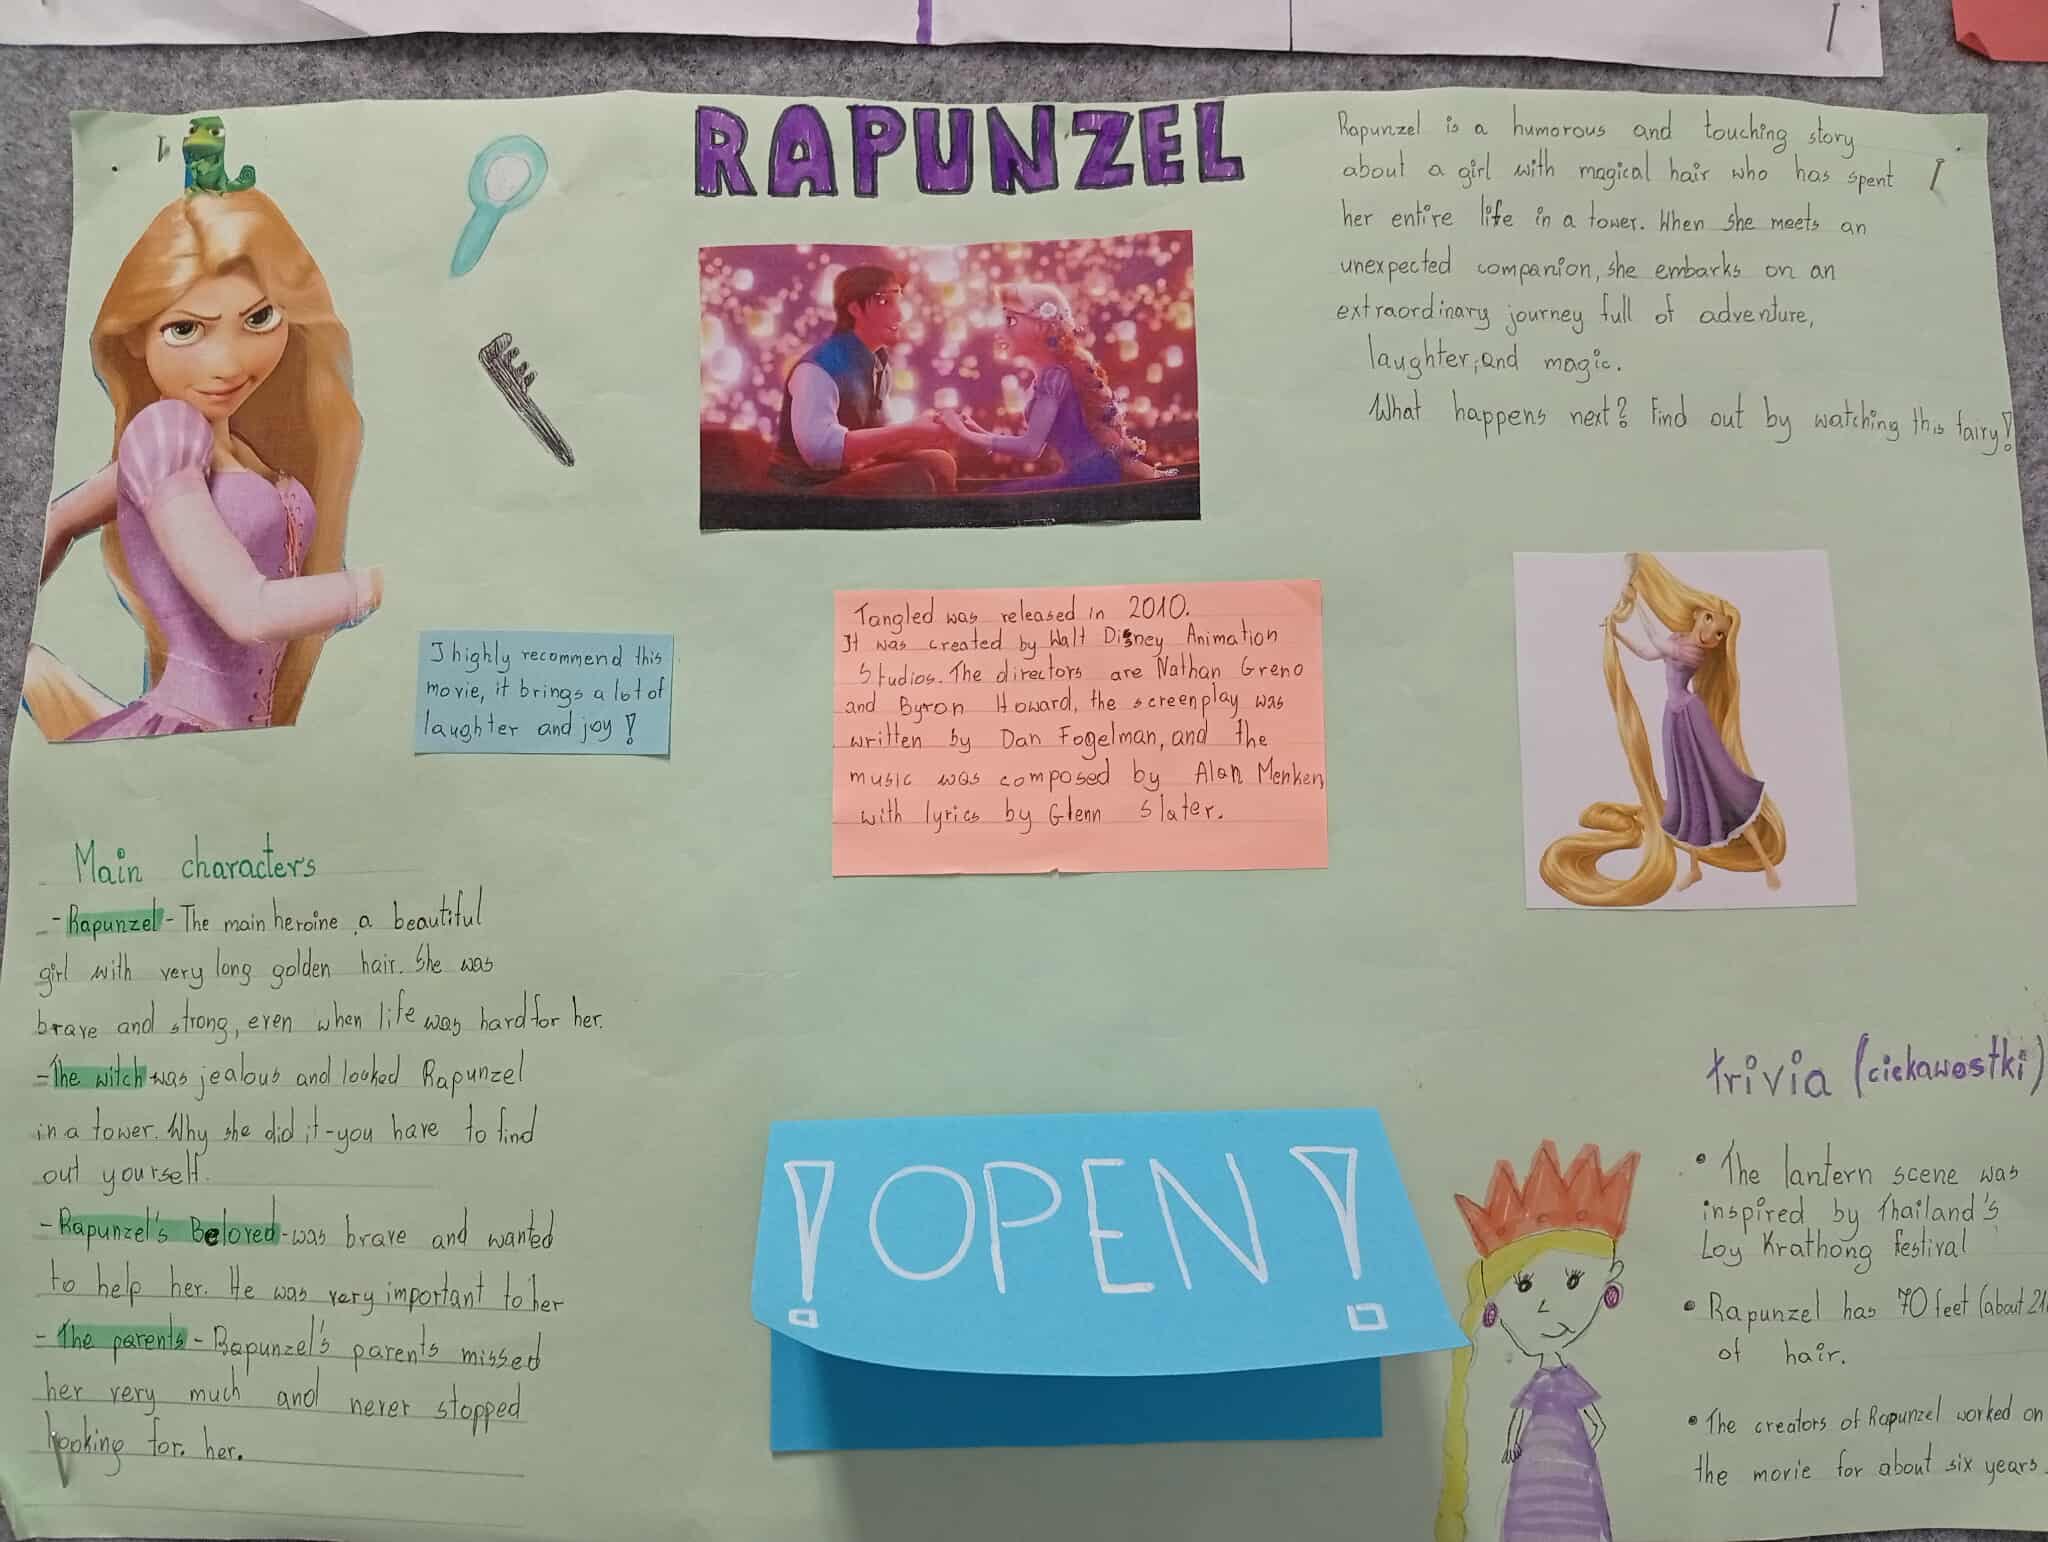 RAPUNZEL
Rapunzel is a humorous and touching story
about a girl with magical hair who has spent
her entire life in a tower. When she meets an
unexpected companion, she embarks on an
extraordinary journey full of adventure,
laughter, and magic.
What happens next? Find out by watching this fairy!
I highly recommend this
movie, it brings a lot of
laughter and joy!
Tangled was released in 2010.
It was created by Walt Disney Animation
Studios. The directors are Nathan Greno
and Byron Howard, the screenplay was
written by Dan Fogelman, and the
music was composed by Alan Menken,
with lyrics by Glenn Slater.
Main characters
- Rapunzel - The main heroine, a beautiful
girl with very long golden hair. She was
brave and strong, even when life was hard for her.
- The witch was jealous and locked Rapunzel
in a tower. Why she did it - you have to find
out yourself.
- Rapunzel's Beloved - was brave and wanted
to help her. He was very important to her
- The parents - Rapunzel's parents missed
her very much and never stopped
looking for her.
! OPEN !
trivia (ciekawostki)
• The lantern scene was
inspired by Thailand's
Loy Krathong festival
• Rapunzel has 70 feet (about 21
of hair.
• The creators of Rapunzel worked on
the movie for about six years.